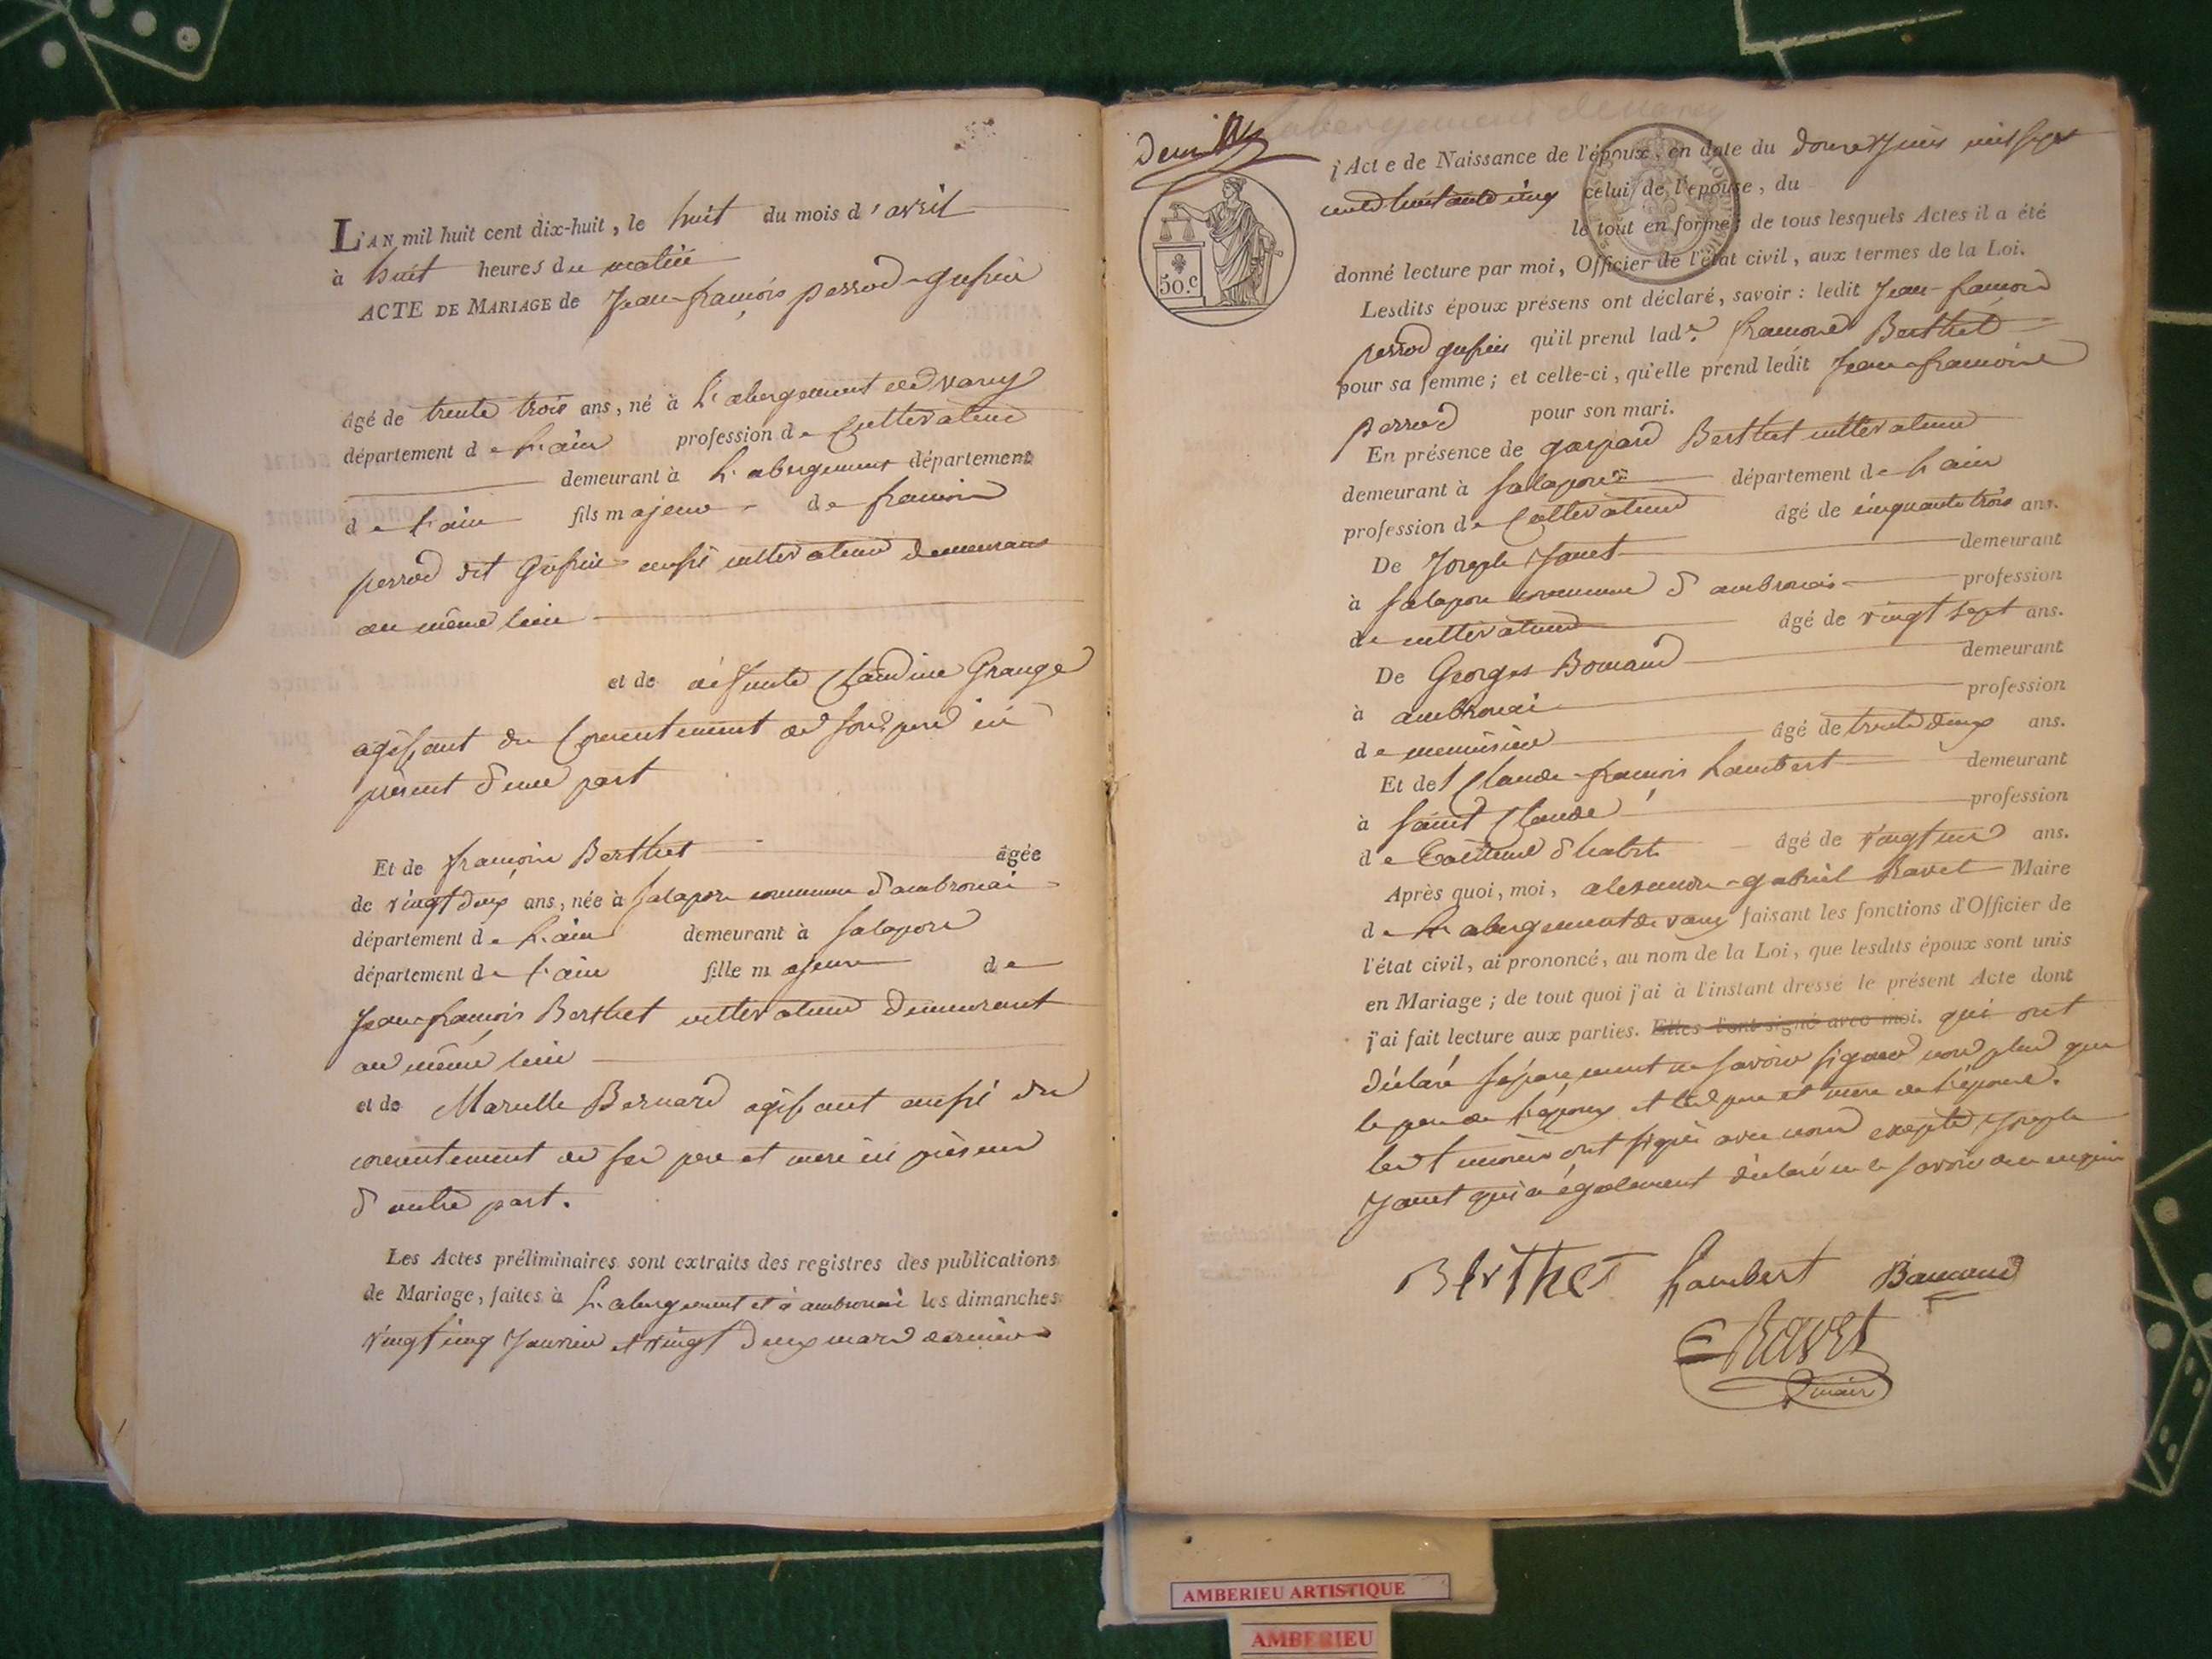 L'AN mil huit cent dix-huit, le huit du mois d'avril
à huit heures du matin
ACTE DE MARIAGE de Jean-françois perrod-gufrin
âgé de trente trois ans, né à L'abergement de varey
département de L'ain profession de Cultivateur
demeurant à L'abergement département
de L'ain fils majeur de françois
perrod dit Gufrin aussi cultivateur demeurant
au même lieu
et de défunte Claudine Grange
agissant du Consentement de son pere ici
présent d'une part
Et de françoise Berthet âgée
de vingt deux ans, née à Salapore commune d'ambronai
département de L'ain demeurant à Salapore
département de L'ain fille majeure de
Jean-françois Berthet cultivateur demeurant
au même lieu
et de Marie Bernard agissant aussi du
consentement de ses pere et mere ici présens
d'autre part.
Les Actes préliminaires sont extraits des registres des publications
de Mariage, faites à L'abergement et à ambronai les dimanches
vingt cinq Janvier et vingt deux mars dernier
Labergement de Varey
j Acte de Naissance de l'époux, en date du douze Juin mil sept
cent huitante cinq celui de l'épouse, du
50.c
le tout en forme; de tous lesquels Actes il a été
donné lecture par moi, Officier de l'état civil, aux termes de la Loi.
Lesdits époux présens ont déclaré, savoir : ledit Jean-françois
perrod gufrin qu'il prend lad.e françoise Berthet
pour sa femme; et celle-ci, qu'elle prend ledit Jean-françois
perrod pour son mari.
En présence de gaspard Berthet cultivateur
demeurant à Salapore département de L'ain
profession de Cultivateur âgé de cinquante trois ans.
De Joseph Janet demeurant
à Salapore commune d'ambronai profession
de cultivateur âgé de vingt sept ans.
De Georges Bomand demeurant
à ambronai profession
de menuisier âgé de trente deux ans.
Et de Claude-françois Lambert demeurant
à Saint Claude profession
de Tailleur d'habit âgé de vingt un ans.
Après quoi, moi, alexandre-gabriel Ravet Maire
de L'abergement de varey faisant les fonctions d'Officier de
l'état civil, ai prononcé, au nom de la Loi, que lesdits époux sont unis
en Mariage; de tout quoi j'ai à l'instant dressé le présent Acte dont
j'ai fait lecture aux parties. Elles l'ont signé avec moi. qui ont
déclaré séparément ne savoir signer non plus que
le pere de l'époux et les pere et mere de l'épouse.
les témoins ont signé avec nous excepté Joseph
Janet qui a également déclaré ne le savoir de ce enquis
Berthet Lambert Bomand
Ravet
maire
AMBERIEU ARTISTIQUE
AMBERIEU